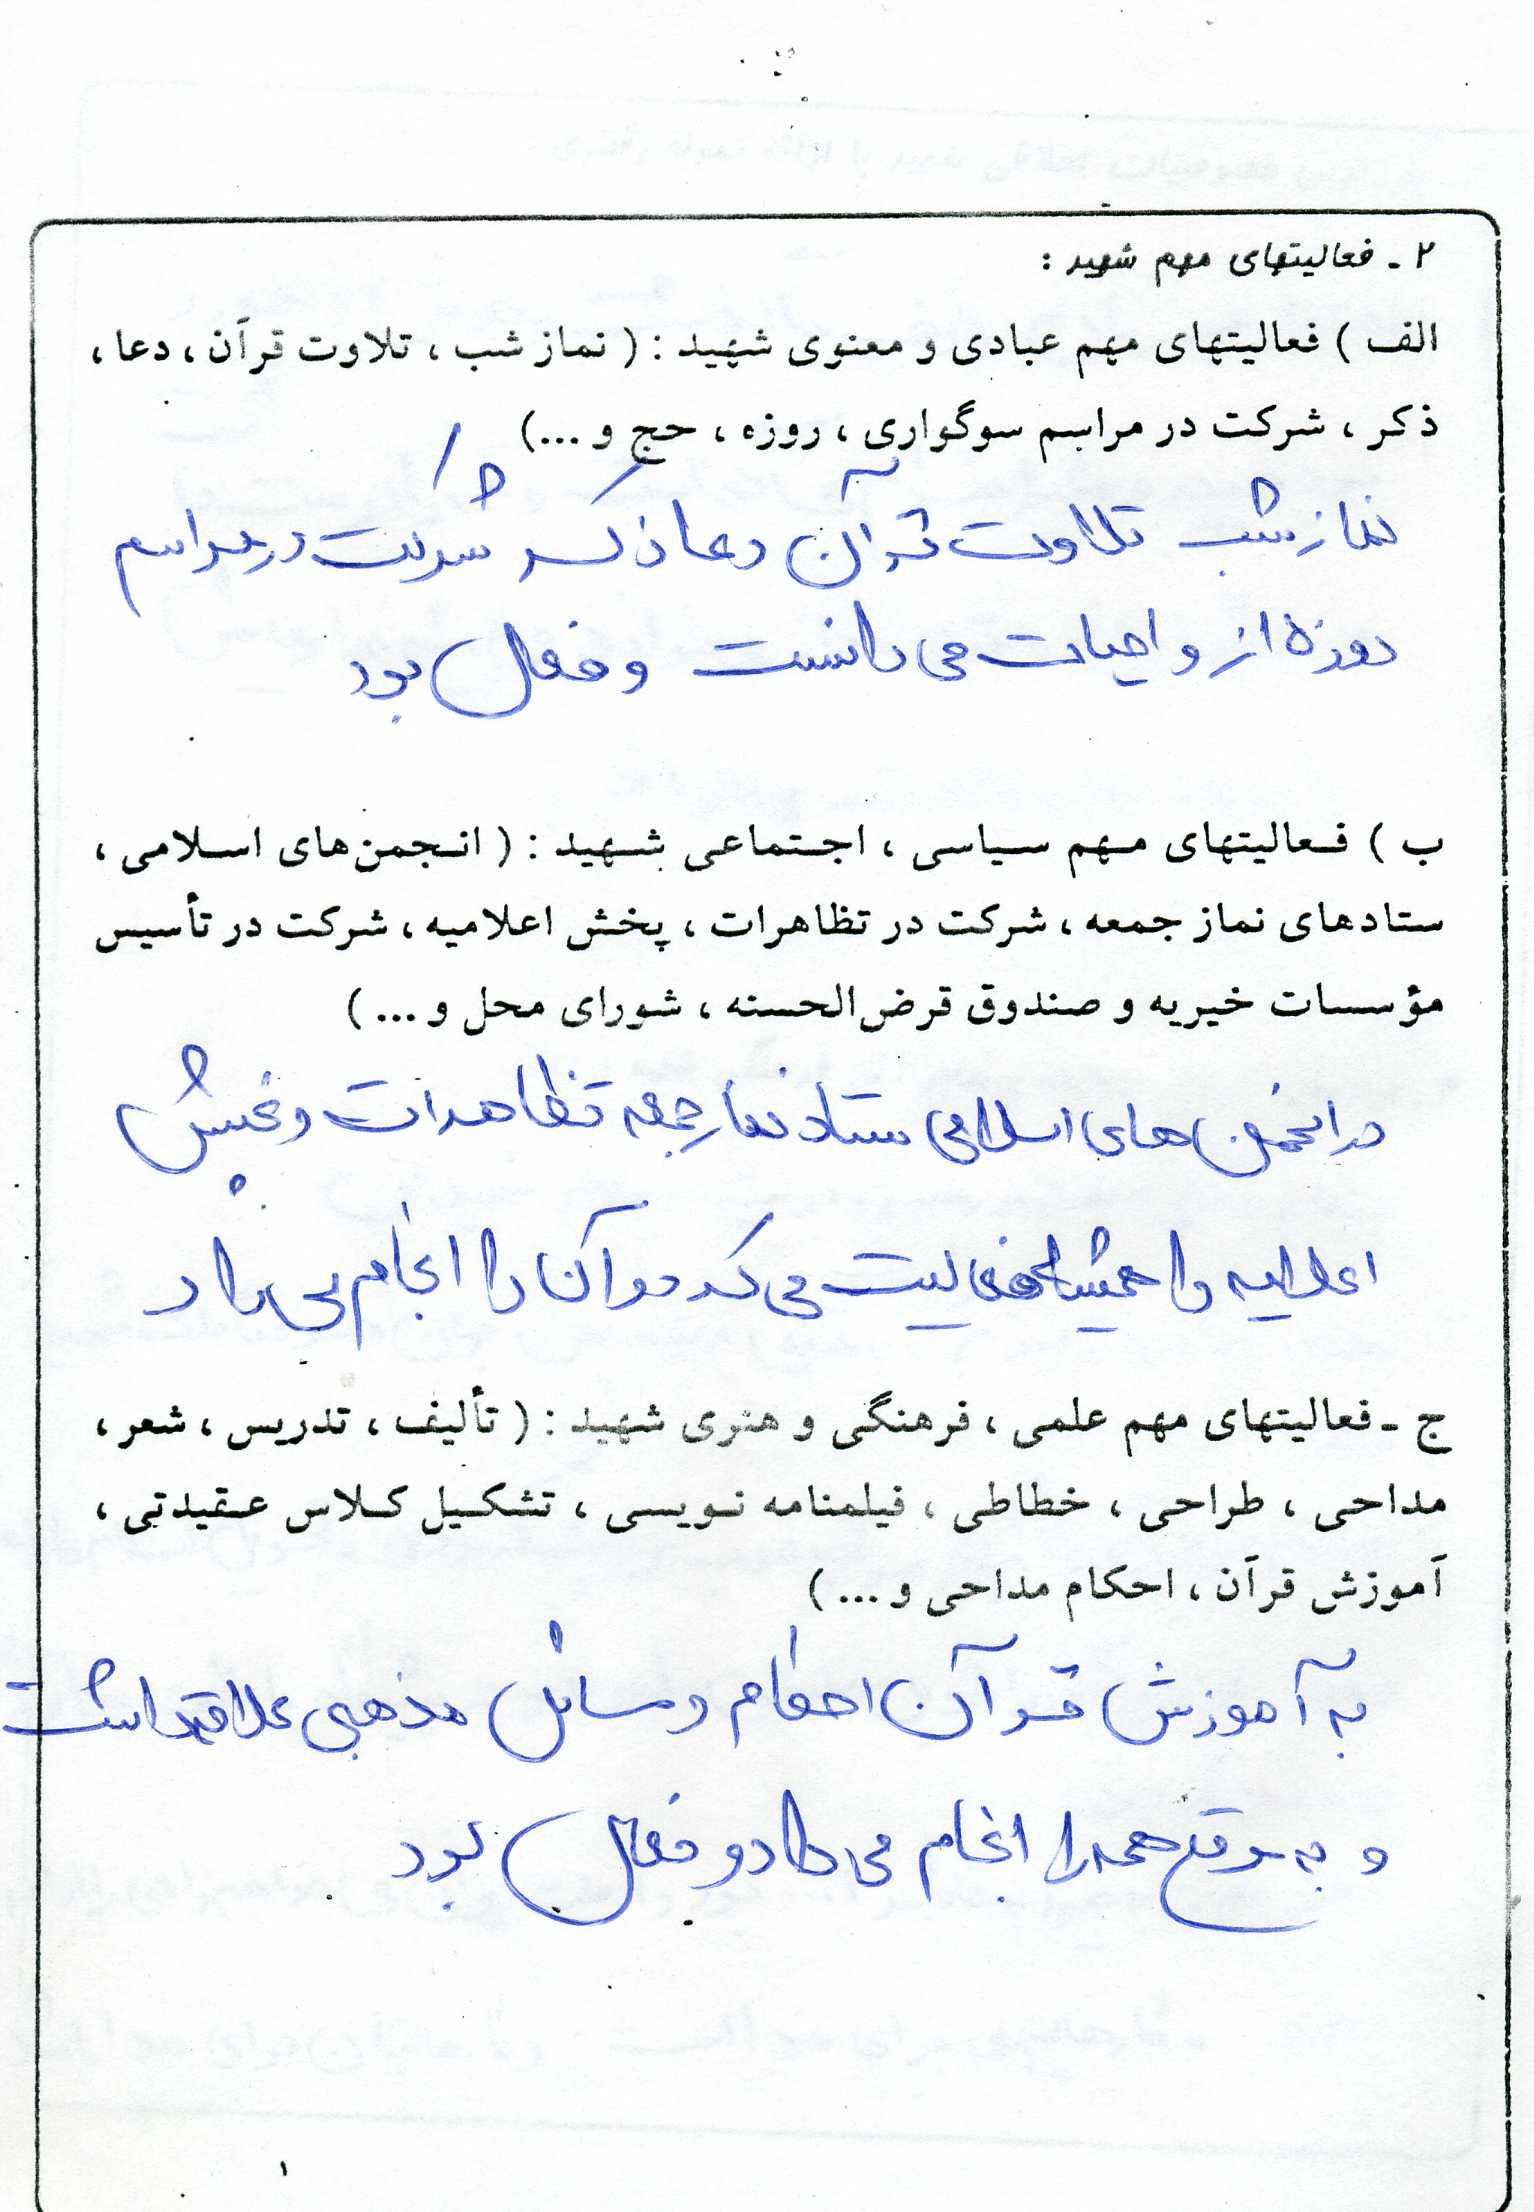 ۲ ـ فعالیتهای مهم شهید :
الف ) فعالیتهای مهم عبادی و معنوی شهید : ( نماز شب ، تلاوت قرآن ، دعا ،
ذکر ، شرکت در مراسم سوگواری ، روزه ، حج و ...)
نماز شب تلاوت قرآن دعا ذکر شرکت در مراسم
روزه از واجبات می دانست و فعال بود
ب ) فعالیتهای مهم سیاسی ، اجتماعی شهید : ( انجمن‌های اسلامی ،
ستادهای نماز جمعه ، شرکت در تظاهرات ، پخش اعلامیه ، شرکت در تأسیس
مؤسسات خیریه و صندوق قرض‌الحسنه ، شورای محل و ... )
در انجمن های اسلامی ستاد نماز جمعه تظاهرات و پخش
اعلامیه را همیشه فعالیت می کرد و آن را انجام می داد
ج ـ فعالیتهای مهم علمی ، فرهنگی و هنری شهید : ( تألیف ، تدریس ، شعر ،
مداحی ، طراحی ، خطاطی ، فیلمنامه نویسی ، تشکیل کلاس عقیدتی ،
آموزش قرآن ، احکام مداحی و ... )
به آموزش قرآن احکام و مسائل مذهبی علاقه داشت
و به موقع همه را انجام می داد و فعال بود
۱